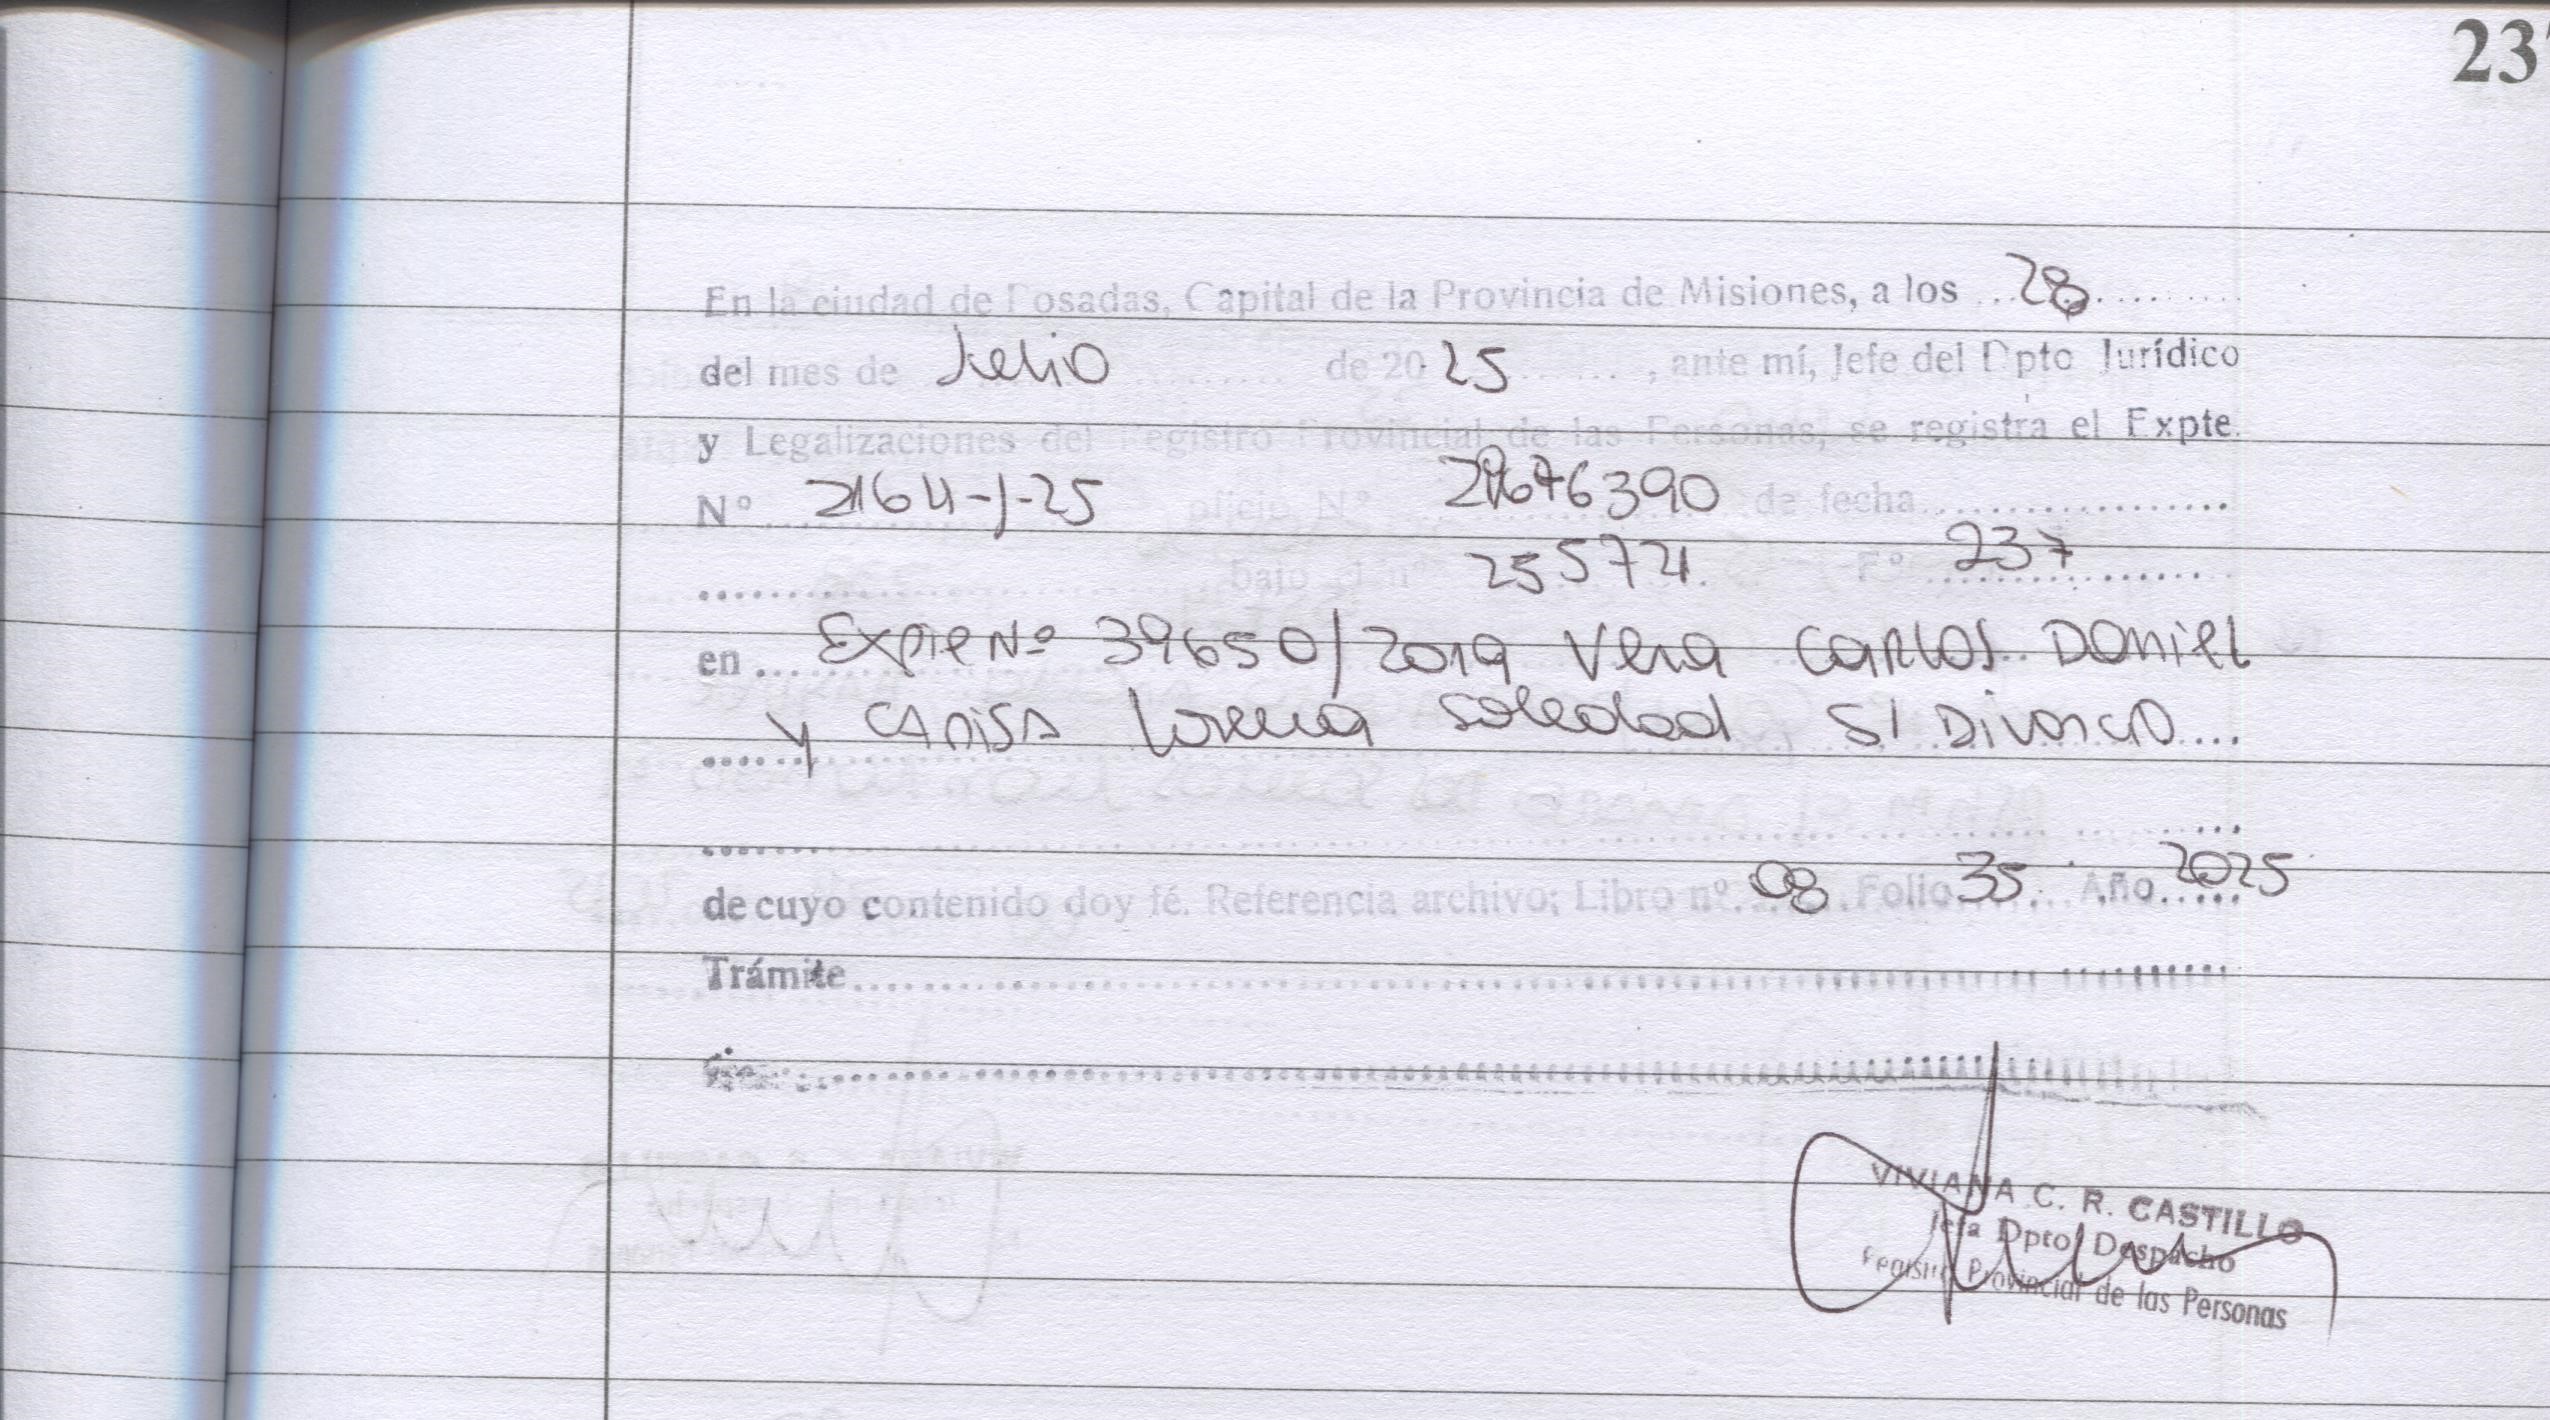 237
En la ciudad de Posadas, Capital de la Provincia de Misiones, a los ... 28 ...
del mes de Julio de 20 25 ..., ante mí, Jefe del Dpto Jurídico
y Legalizaciones del Registro Provincial de las Personas, se registra el Expte.
Nº 2164-J-25 oficio Nº de fecha ...
... bajo el nº F º 237
en ... Expte Nº 39650/2019 Vera Carlos Daniel
y Lorena Soledad S/ Divorcio ...
de cuyo contenido doy fé. Referencia archivo; Libro nº 08 Folio 35 Año 2025
Trámite ...
VIVIANA C. R. CASTILLO
Jefa Dpto Despacho
Registro Provincial de las Personas